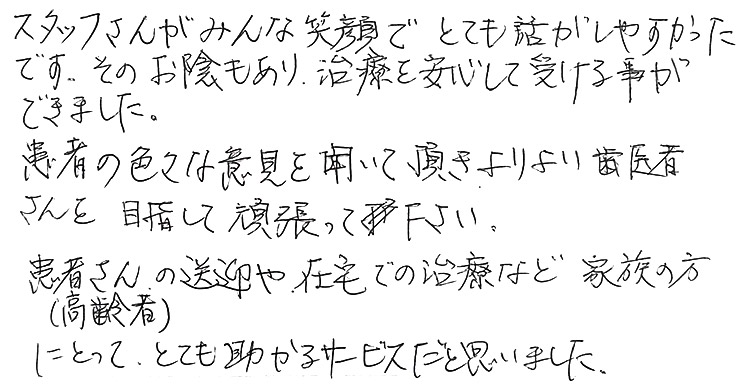 スタッフさんがみんな笑顔でとても話がしやすかった
です。そのお陰もあり、治療を安心して受ける事が
できました。
患者の色々な意見を聞いて頂きよりよい歯医者
さんを目指して頑張って下さい。
患者さんの送迎や、在宅での治療など家族の方
(高齢者)
にとって、とても助かるサービスだと思いました。